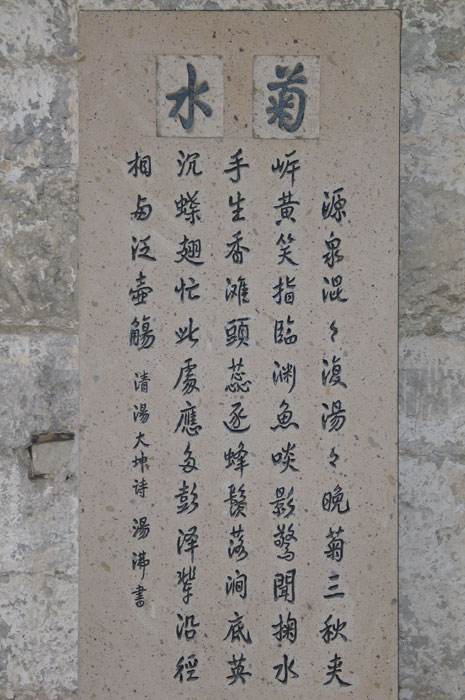 菊水
源泉混々復湯々晚菊三秋夹
岸黄笑指臨渊魚啖影驚聞掬水
手生香滩頭蕊逐蜂鬚落涧底英
沉蝶翅忙此處應多彭泽輩沿徑
相与泛壺觴 清湯大坤诗 湯沸書